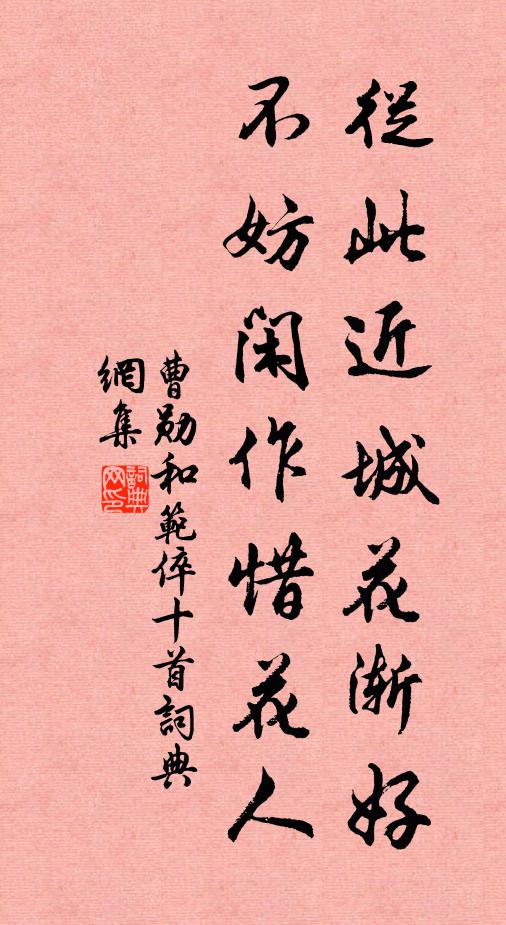 從此近城花漸好
不妨閑作惜花人
曹勛和範倅十首詞典
網集
詞典
网印